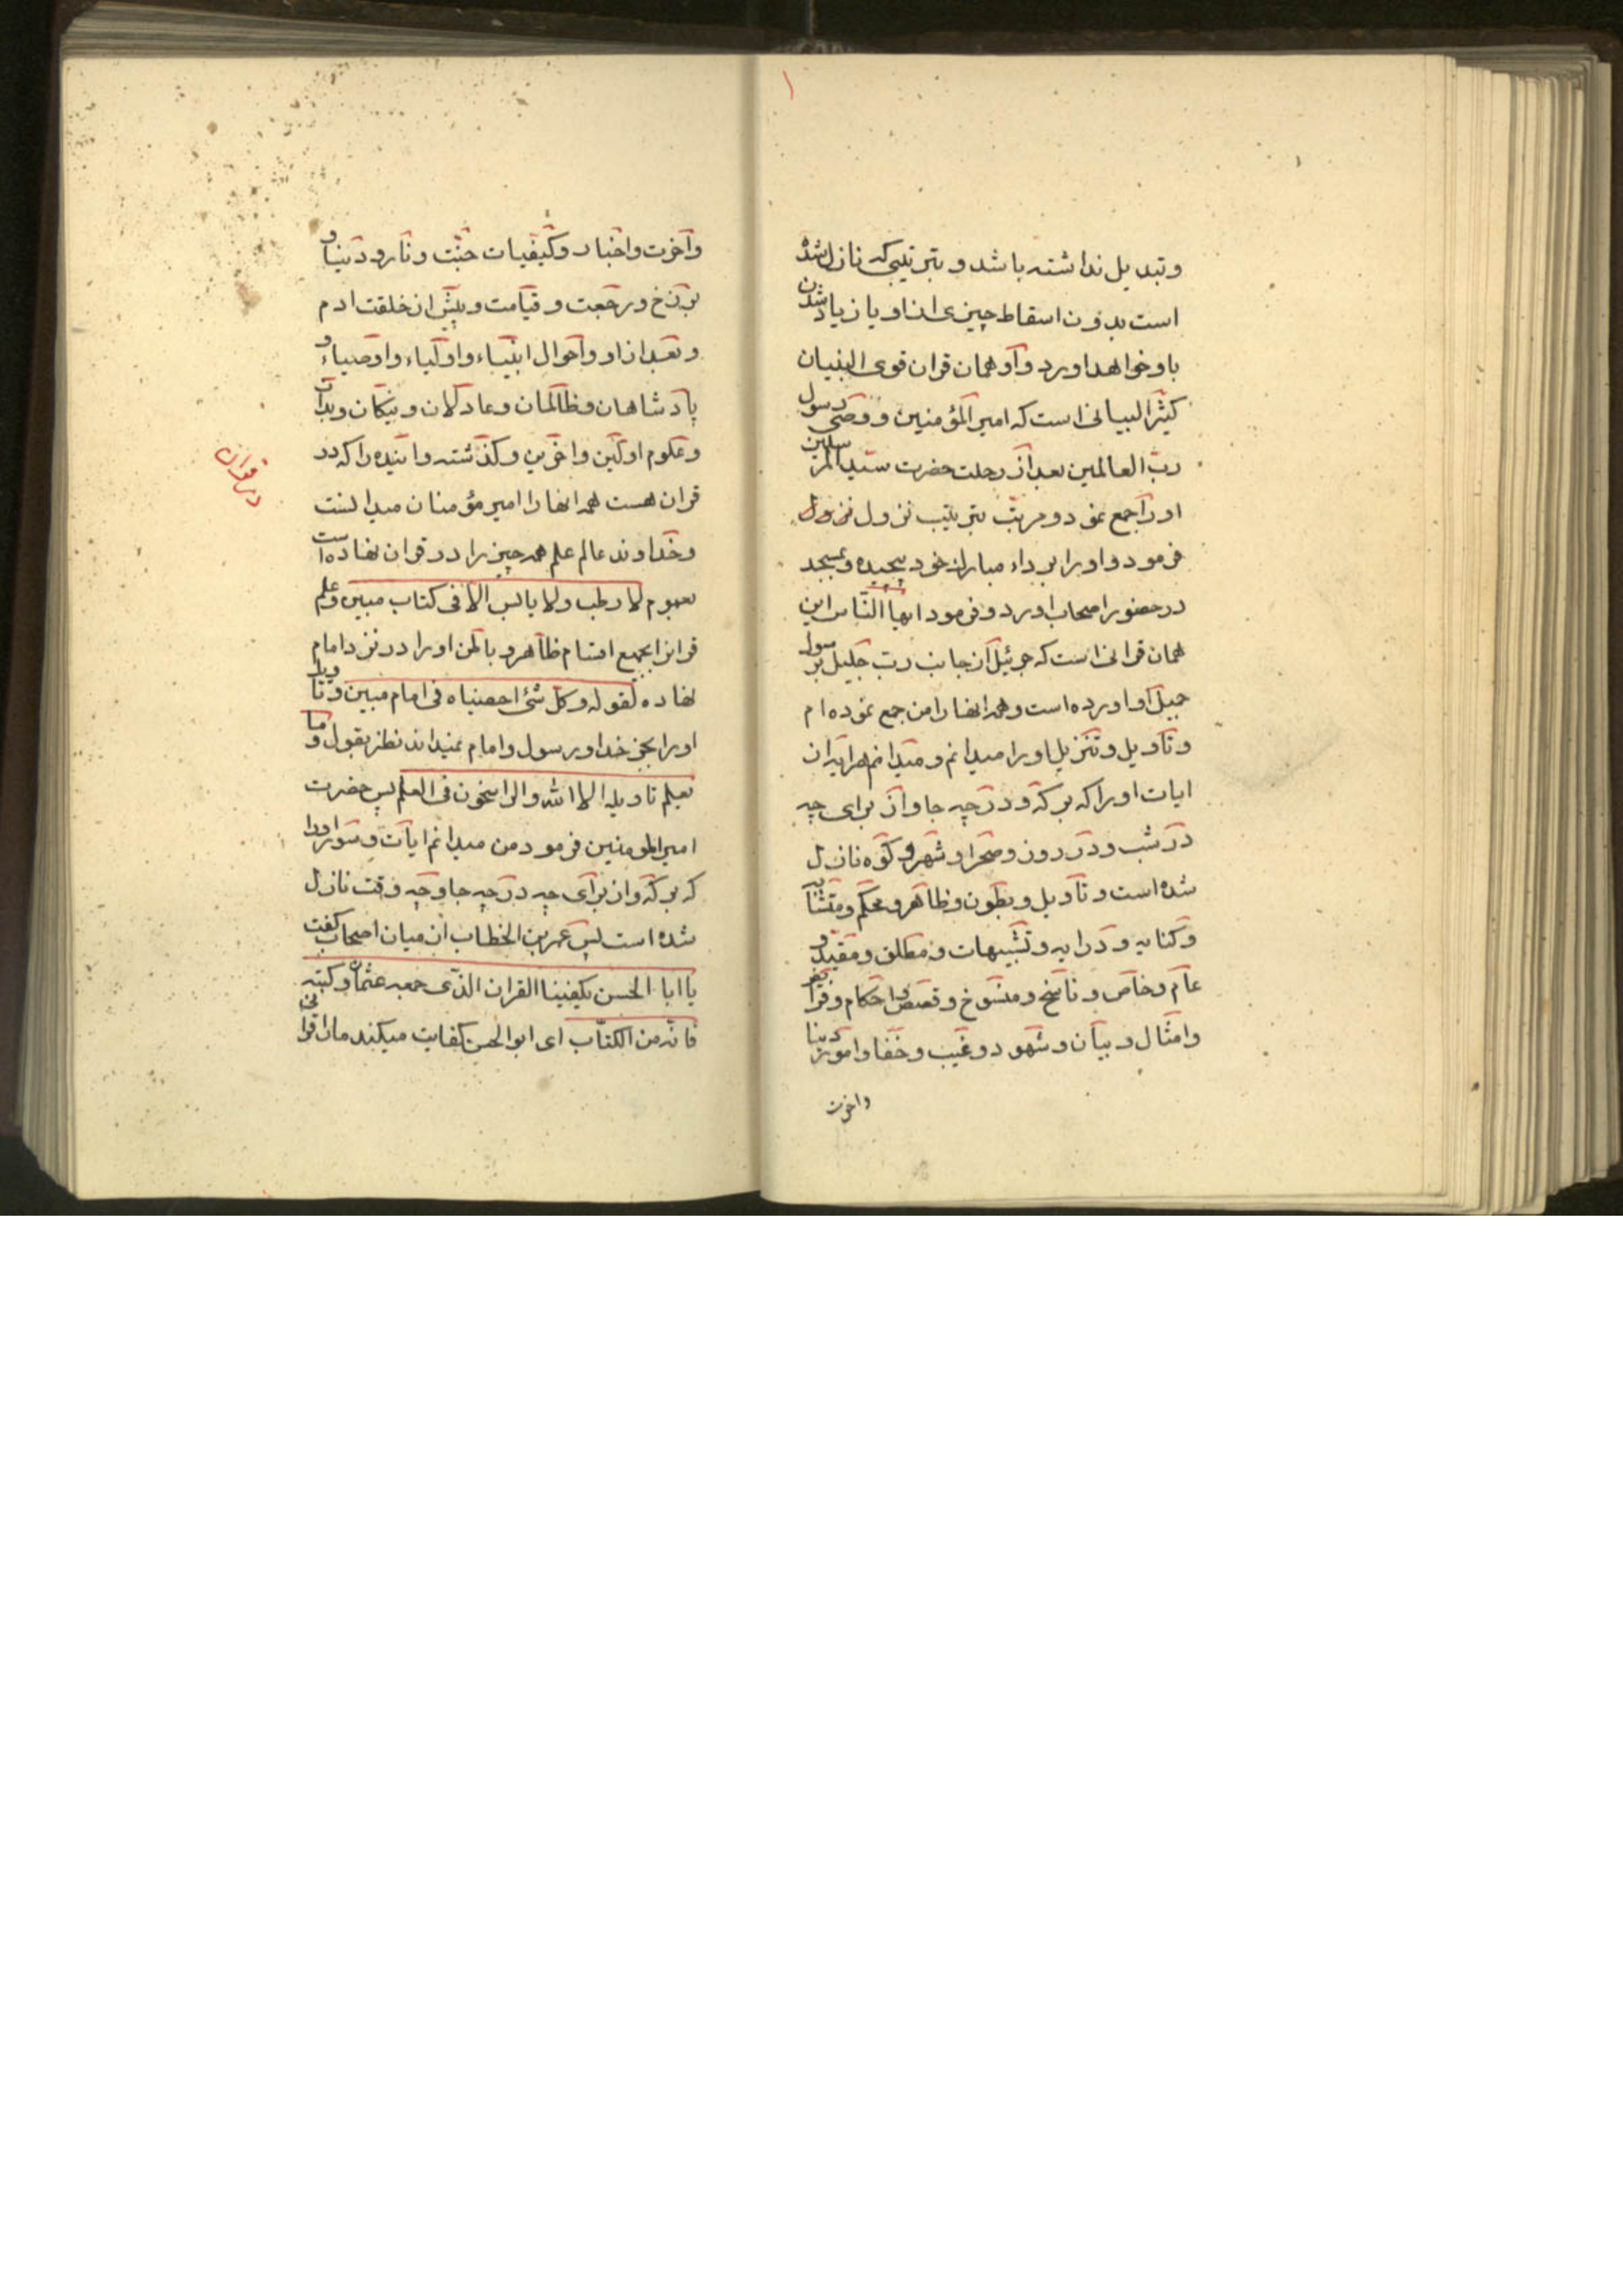 وتبدیل نداشته باشد و بترتیبی که نازل شده
است بدون اسقاط چیزی از او یا زیاد شدن
باو خواهد اورد و او همان قران قوی البنیان
کثیر البیانی است که امیر المؤمنین و وصی رسول
ربّ العالمین بعد از رحلت حضرت سیّد المرسلین
او را جمع نمود و مرتب بترتیب نزول نزول
فرمود و او را برداء مبارك خود پیچیده و بمسجد
در حضور اصحاب اورد و فرمود ایها النّاس این
همان قرانی است که جبرئیل از جانب ربّ جلیل بر سول
جمیل او اورده است و همه انها را من جمع نموده ام
و تأویل و تنزیل او را میدانم و میدانم هر ایه از ان
ایات او را که بر که و در چه جا و از برای چه
در شب و در روز و صحرا و شهر و کوه نازل
شده است و تأویل و بطون و ظاهر و محکم و متشابه
و کنایه و درایه و تشبیهات و مطلق و مقیّد و
عام و خاص و ناسخ و منسوخ و قصص و احکام و فرایض
و امثال و بیان و شهود و غیب و خفا و امور دنیا
واخرت
واخرت و اخبار و کیفیات جنّت و نار و دنیا و
برزخ و رجعت و قیامت و پیش از خلقت ادم
و بعد از او و احوال انبیاء و اولیاء و اوصیاء و
پادشاهان و ظالمان و عادلان و نیکان و بدان
و علوم اولین و اخرین و کذشته و اینده را که در
در قران
قران هست همه انها را امیر مؤمنان میدانست
و خداوند عالم علم همه چیز را در قران نهاده است
بعموم لا رطب ولا یابس الا فی کتاب مبین و علم
قران را بجمیع اقسام ظاهر و باطن او را در نزد امام
نهاده لقوله و کل شئ احصیناه فی امام مبین و تاویل
او را بجز خدا و رسول و امام نمیداند نظر بقول و ما
یعلم تاویله الا الله والراسخون فی العلم پس حضرت
امیر المومنین فرمود من میدانم ایات و سور او را
که بر که و از برای چه در چه جا و چه وقت نازل
شده است پس عمر بن الخطاب از میان اصحاب کفت
یا ابا الحسن یکفینا القران الذی جمعه عثمان و کتبه
فانه من الکتاب ای ابو الحسن کفایت میکند ما را قرانی